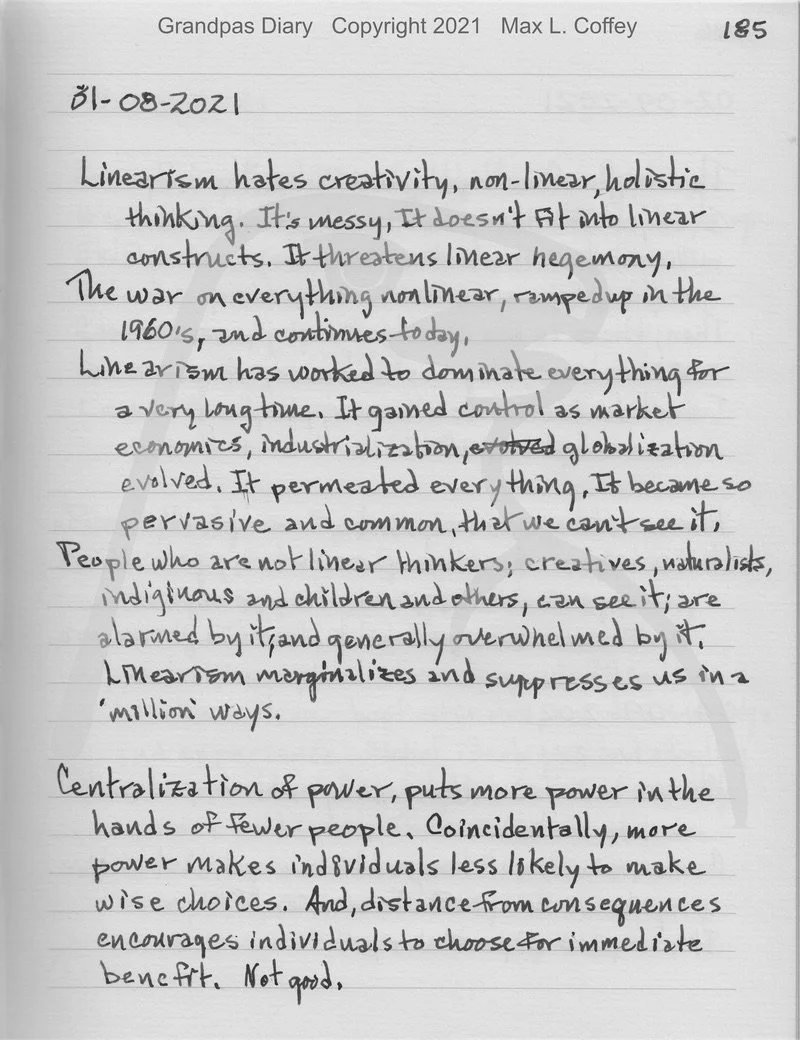 Grandpas Diary Copyright 2021 Max L. Coffey
185
31-08-2021
Linearism hates creativity, non-linear, holistic
thinking. It's messy, It doesn't fit into linear
constructs. It threatens linear hegemony.
The war on everything nonlinear, ramped up in the
1960's, and continues today.
Linearism has worked to dominate everything for
a very long time. It gained control as market
economics, industrialization, evolved globalization
evolved. It permeated everything. It became so
pervasive and common, that we can't see it.
People who are not linear thinkers; creatives, naturalists,
indiginous and children and others, can see it; are
alarmed by it; and generally overwhelmed by it.
Linearism marginalizes and suppresses us in a
'million' ways.
Centralization of power, puts more power in the
hands of fewer people. Coincidentally, more
power makes individuals less likely to make
wise choices. And, distance from consequences
encourages individuals to choose for immediate
benefit. Not good.